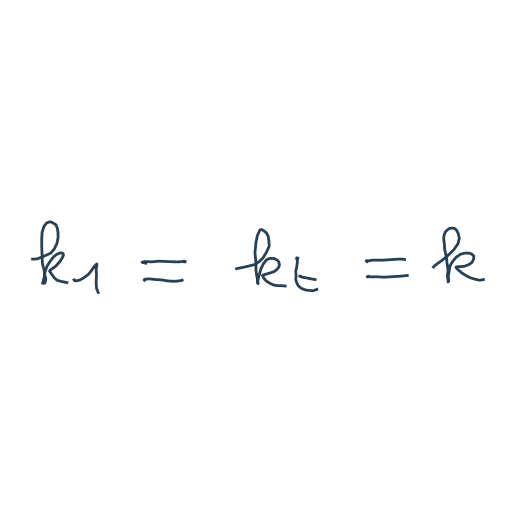 k₁ = kₜ = k